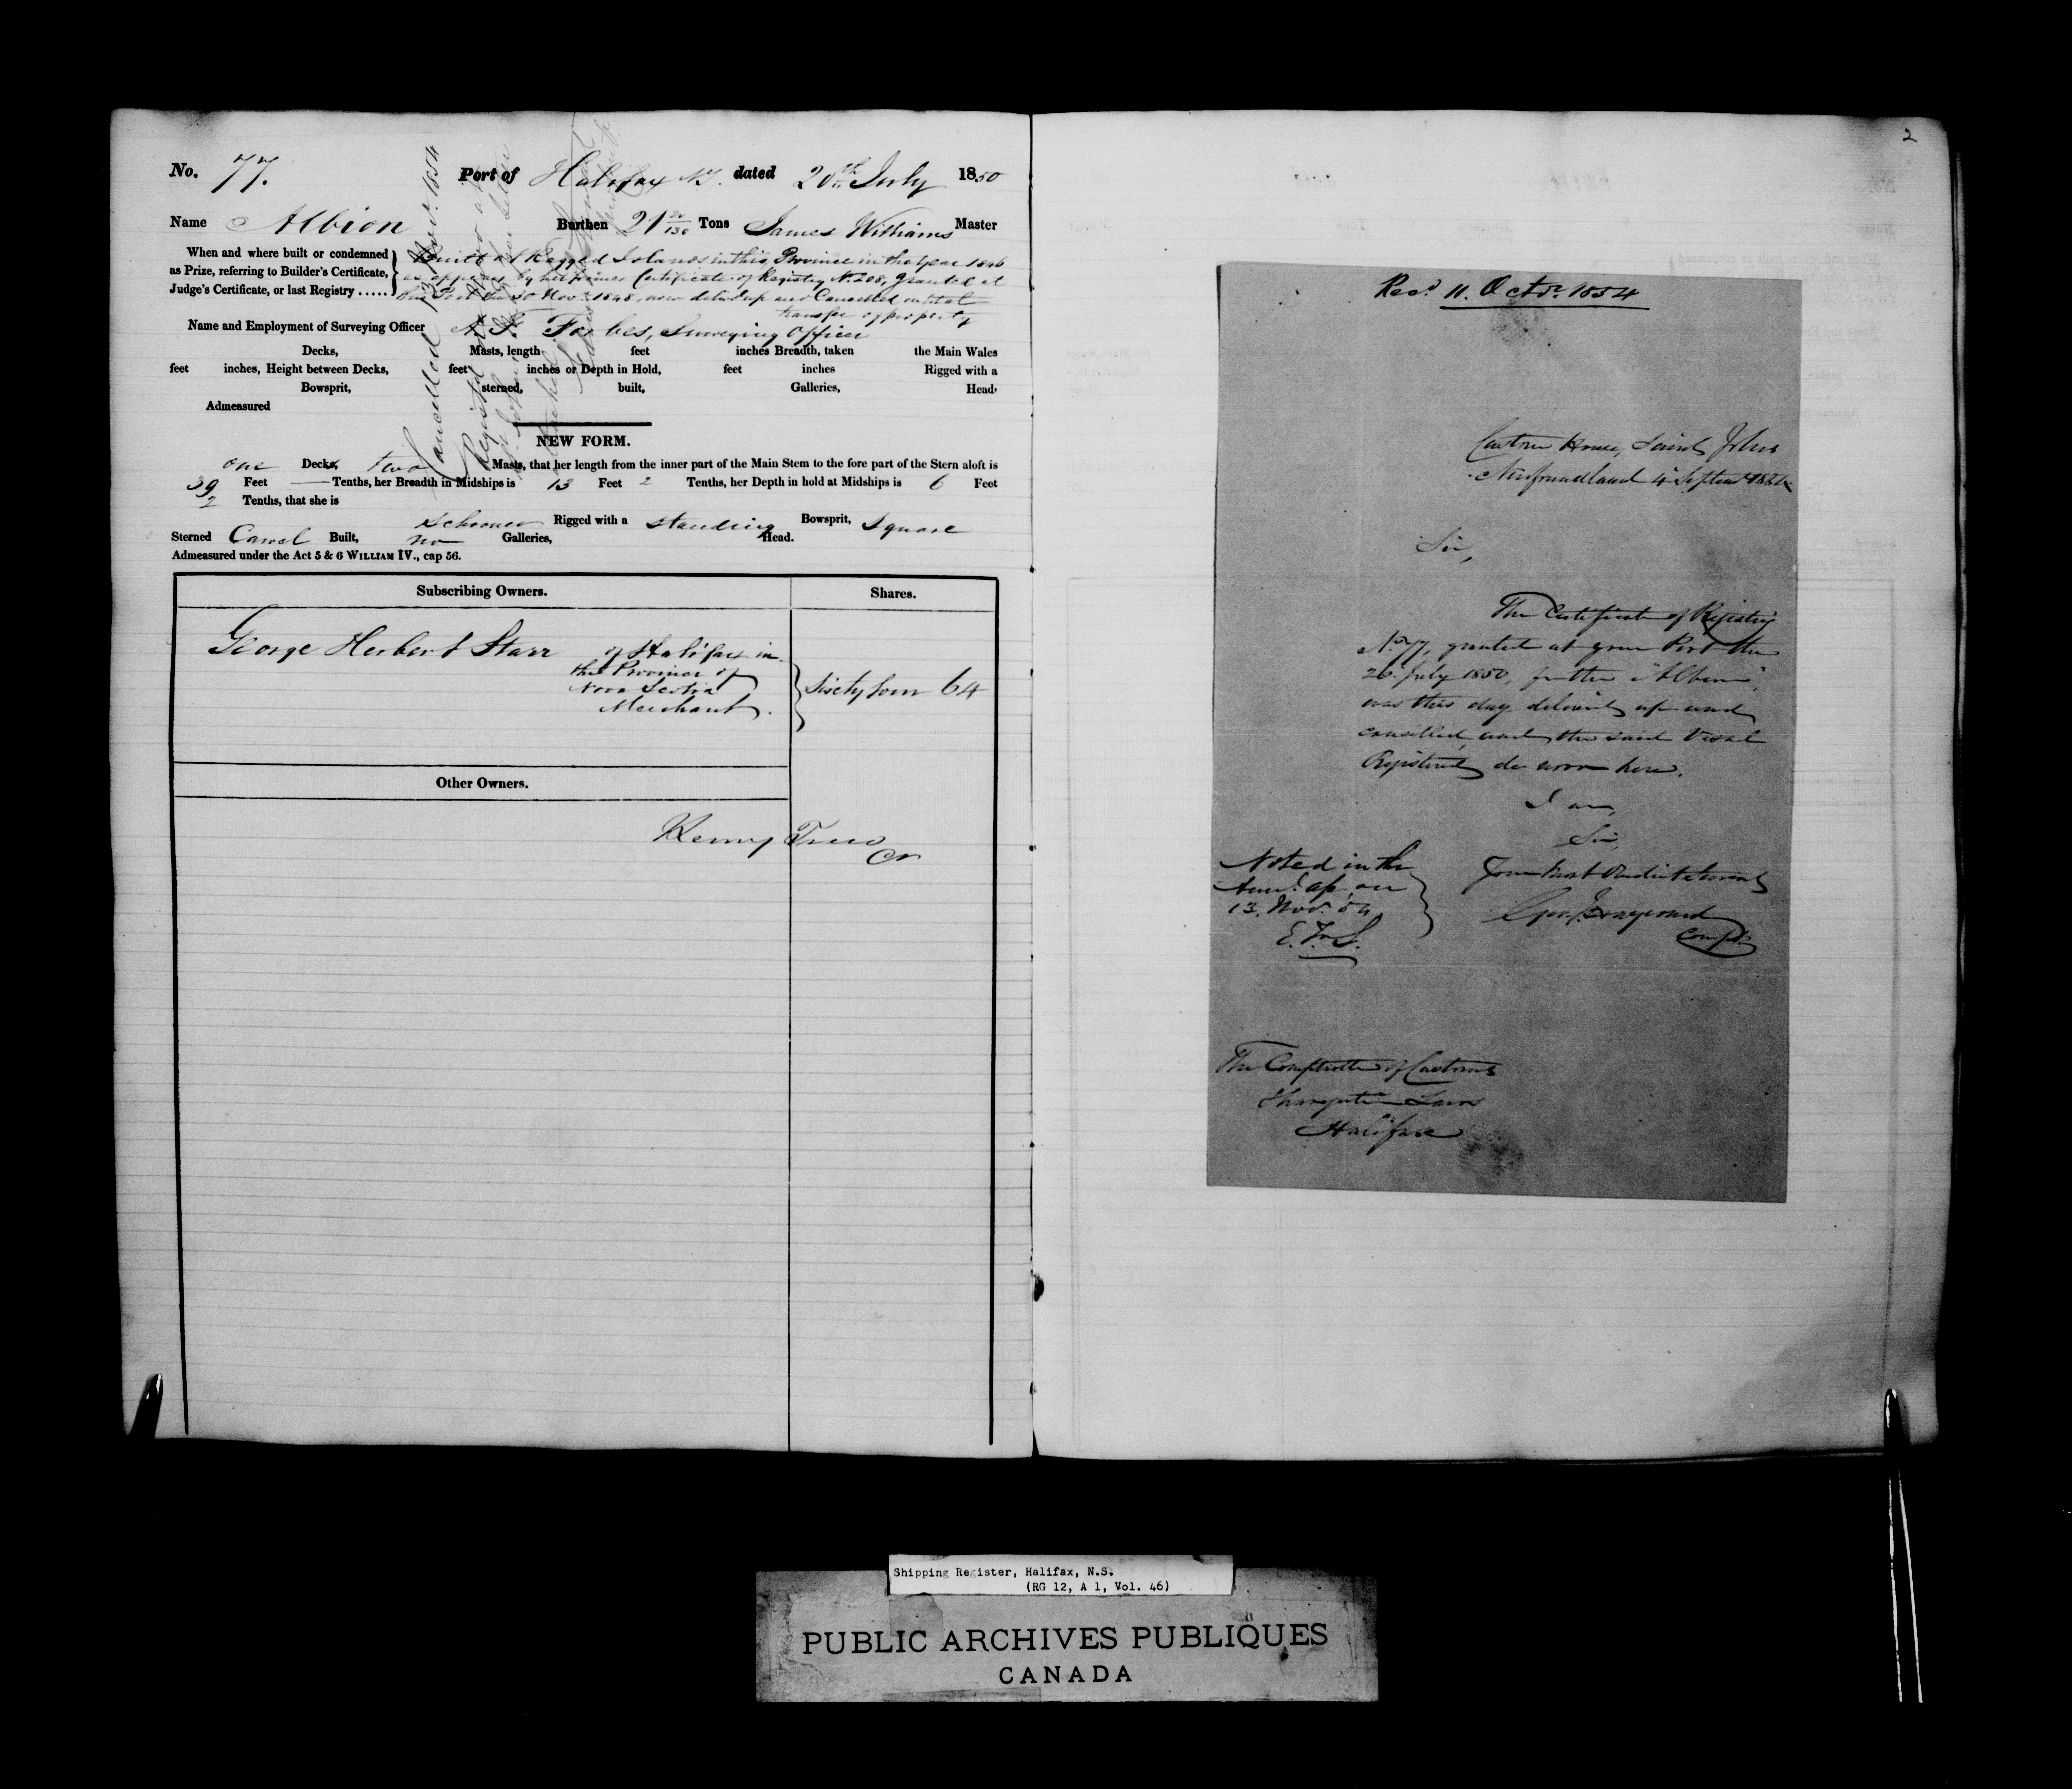 No. 77. Port of Halifax NS. dated 20th July 1850
Name Albion Burthen 21 Tons James Williams Master
When and where built or condemned
as Prize, referring to Builder's Certificate,
Judge's Certificate, or last Registry .....
Built at Ragged Islands in this Province in the year 1846
as appears by her former Certificate of Registry No. 208, granted at
this Port the 30 Nov. 1848, now delivd up and Cancelled
transfer of property
Name and Employment of Surveying Officer Forbes, Surveying Officer
Decks, Masts, length feet inches Breadth, taken the Main Wales
feet inches, Height between Decks, feet inches or Depth in Hold, feet inches Rigged with a
Bowsprit, sterned, built, Galleries, Head,
Admeasured
Cancelled 13 Novr. 1854
NEW FORM.
one Decks, two Masts, that her length from the inner part of the Main Stem to the fore part of the Stern aloft is
39 Feet — Tenths, her Breadth in Midships is 13 Feet 2 Tenths, her Depth in hold at Midships is 6 Feet
2 Tenths, that she is
Schooner Rigged with a standing Bowsprit, Square
Sterned Carvel Built, no Galleries, Head.
Admeasured under the Act 5 & 6 WILLIAM IV., cap 56.
Subscribing Owners. Shares.
George Herbert Starr of Halifax in
the Province of
Nova Scotia
Merchant.
Sixty four 64
Other Owners.
2
Recd. 11. Octr. 1854
Custom House, Saint Johns
Newfoundland 4 Septem 1854
Sir,
The Certificate of Registry
No. 77, granted at your Port the
20 July 1850, for the "Albion",
was this day delivered up and
cancelled, and the said Vessel
Registered de novo here.
I am,
Sir,
Your Most Obedient Servant
Compr.
Noted in the
13. Novr. 54
E.
The Comptroller of Customs
Navigation Laws
Halifax
Shipping Register, Halifax, N.S.
(RG 12, A 1, Vol. 46)
PUBLIC ARCHIVES PUBLIQUES
CANADA